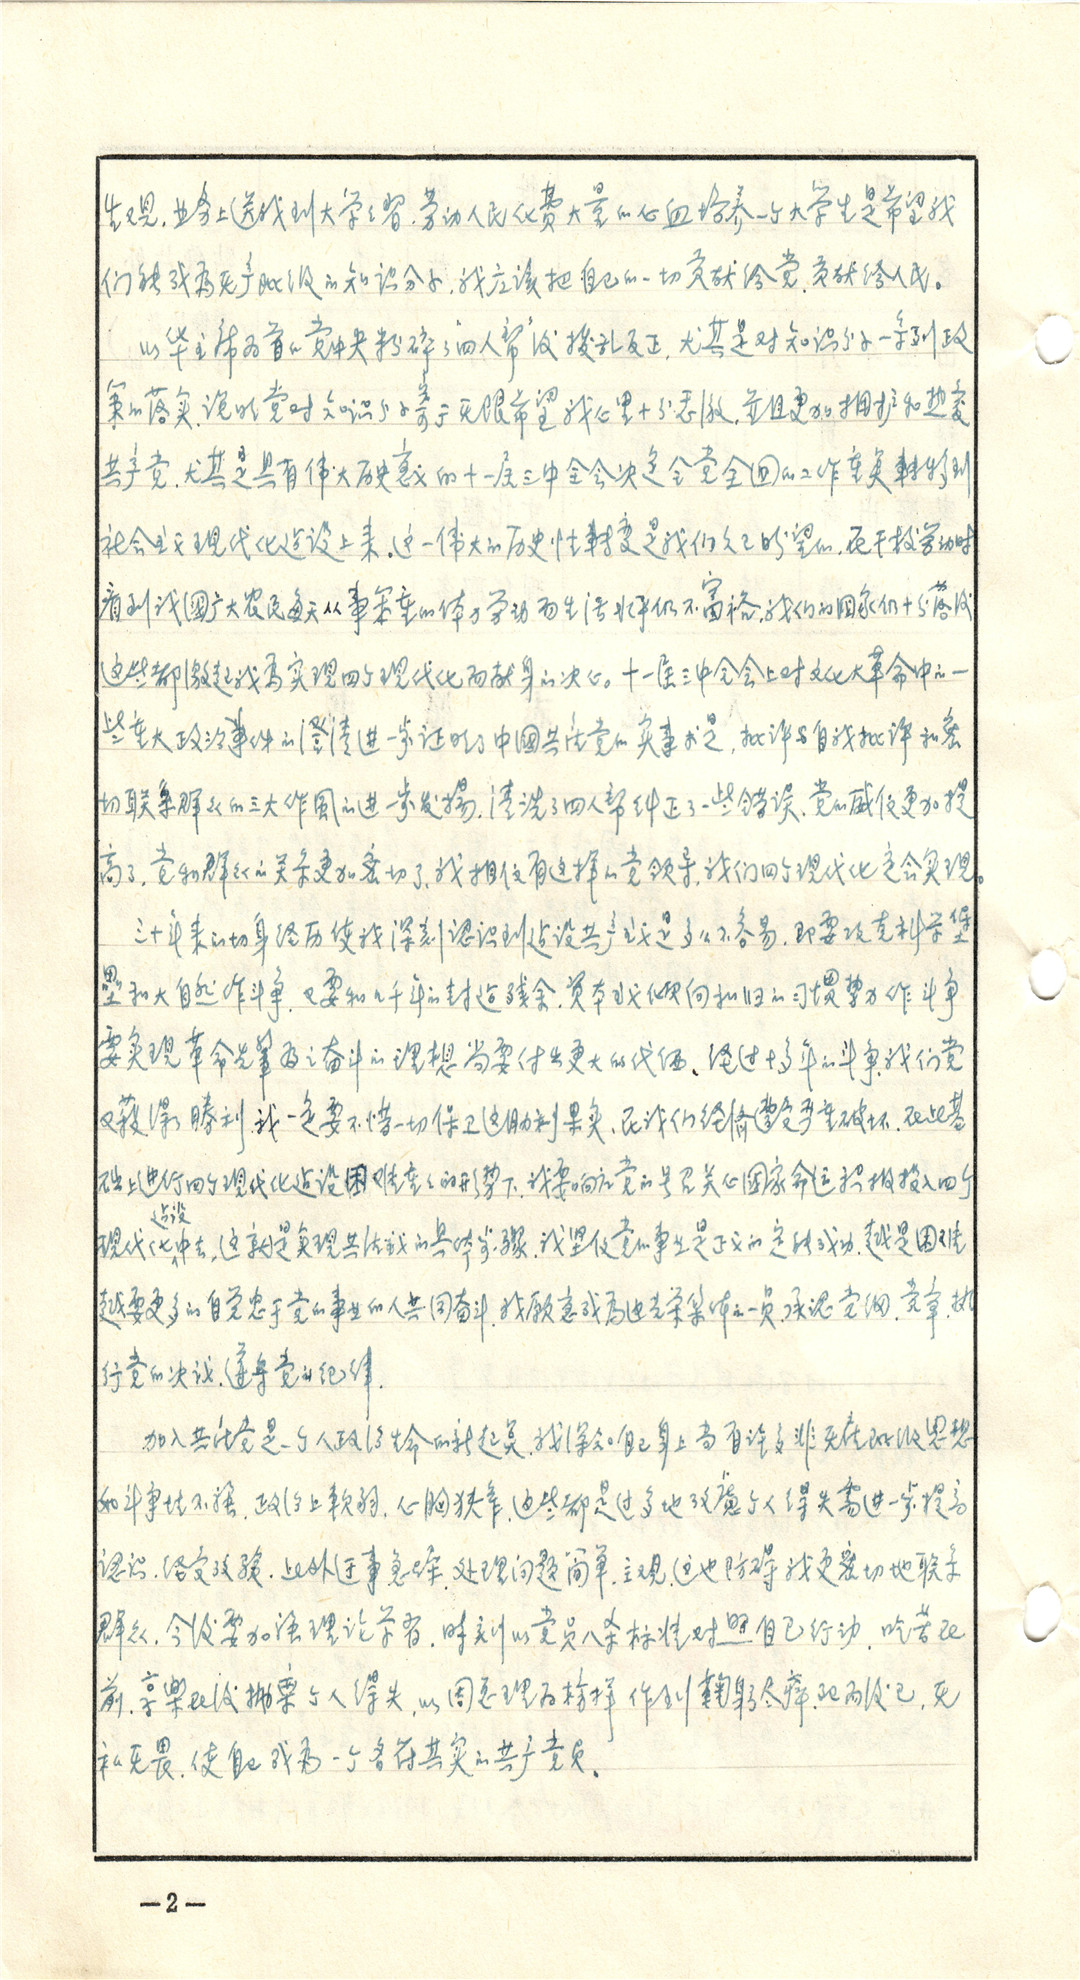 生观，业务上送我到大学学习，劳动人民化费大量的心血培养一个大学生是希望我
们能成为无产阶级的知识分子，我应该把自己的一切贡献给党，贡献给人民。
以华主席为首的党中央粉碎了"四人帮"后拨乱反正，尤其是对知识分子一系列政
策的落实，说明党对知识分子寄于无限希望我心里十分感激，并且更加拥护和热爱
共产党，尤其是具有伟大历史意义的十一届三中全会决定全党全国的工作重点转移到
社会主义现代化建设上来，这一伟大的历史性转变是我们久已盼望的，在干校劳动时
看到我國广大农民每天从事笨重的体力劳动而生活水平仍不富裕，我们的国家仍十分落后
这些都激起我为实现四个现代化而献身的决心。十一届三中全会上对文化大革命中的一
些重大政治事件的澄清进一步证明了中國共产党的实事求是，批评与自我批评和密
切联系群众的三大作風的进一步发揚，清洗了四人帮纠正了一些错误，党的威信更加提
高了，党和群众的关系更加密切了，我相信有这样的党领导，我们四个现代化定会实现。
三十年来的切身经历使我深刻認识到建设共产主义是多么不容易，即要攻克科学堡
壘和大自然作斗争，又要和几千年的封建残余，资本主义倾向和旧的习惯势力作斗争
要实现革命先辈为之奋斗的理想尚要付出更大的代价、经过十多年的斗争，我们党
又获得了勝利，我一定要不惜一切保卫这勝利果实，在我们经儕遭受严重破坏，在此基
础上进行四个现代化建设困难重重的形势下，我要响应党的号召关心國家命运积极投入四个
现代化建设中去，这就是实现共产主义的具体步骤，我坚信党的事业是正义的定能成功，越是困难
越要更多的自觉忠于党的事业的人共同奋斗，我愿意成为这先荣集体的一员，承认党纲，党章，执
行党的决议，遵守党的纪律，
加入共产党是一个人政治生命的新起点，我深知自己身上尚有许多非无产阶级思想
如斗争性不强，政治上軟弱，心胸狭窄，这些都是过多地攷慮个人得失需进一步提高
認识，经受攷驗，此外遇事急燥，处理问题简单，主观，这也防碍我更密切地联系
群众，今后要加强理论学習，时刻以党员八条标准对照自己行动，吃苦在
前，享樂在后抛棄个人得失，以周总理为榜样作到鞠躬尽瘁，死而后已，无
私无畏，使自己成为一个名符其实的共产党员。
—2—